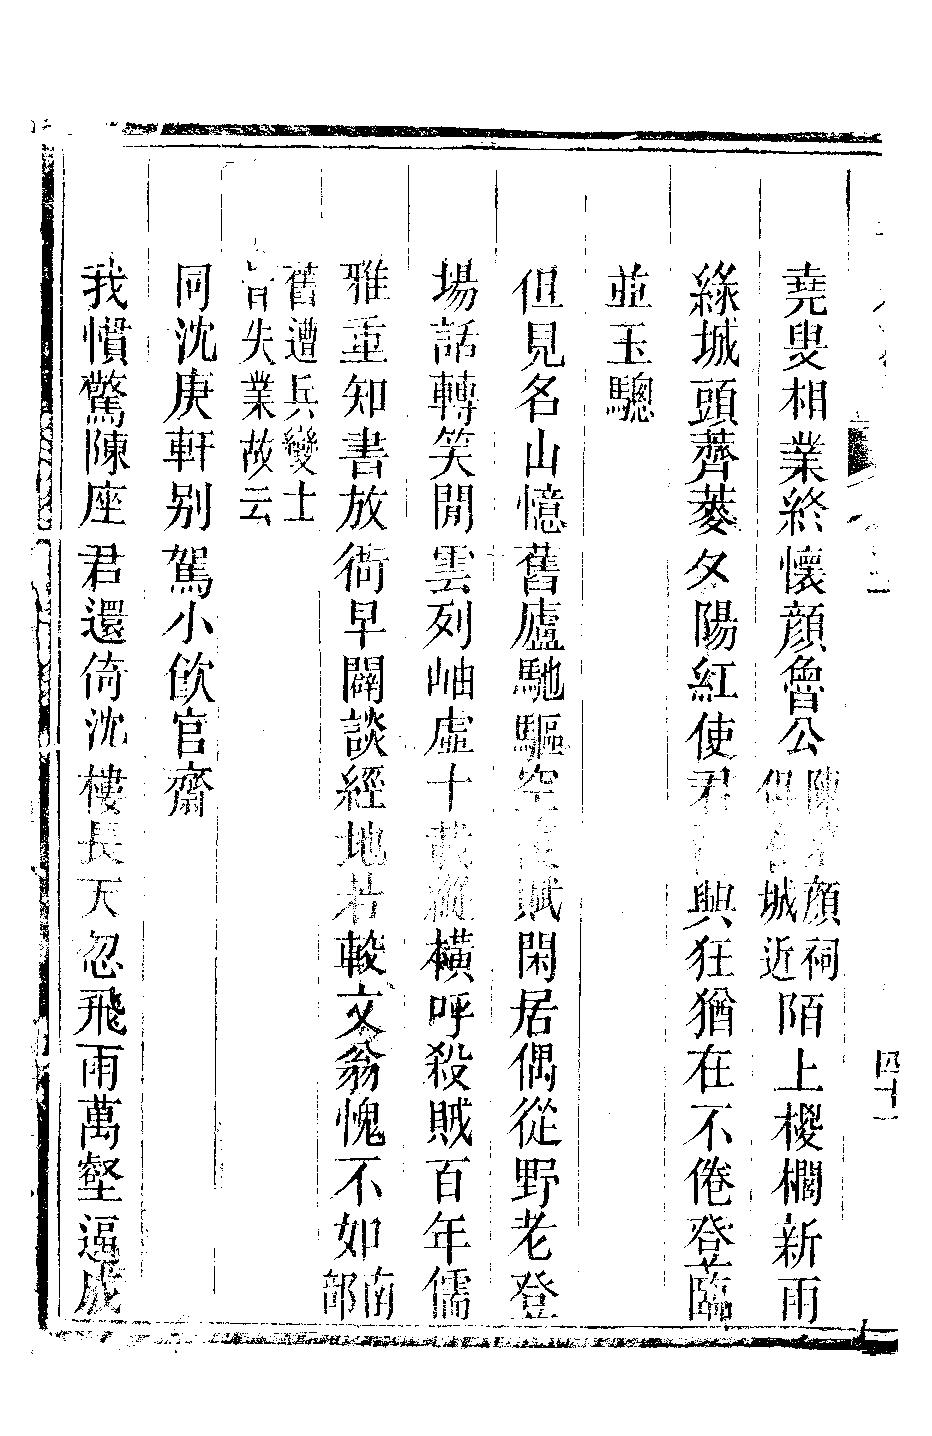 堯叟相業終懷顏魯公陳顏祠俱城近陌上椶櫚新雨
綠城頭薺菱夕陽紅使君興狂猶在不倦登臨
並玉驄
但見名山憶舊廬馳驅空賦閑居偶從野老登
場話轉笑閒雲列岫虛十載縱橫呼殺賊百年儒
雅重知書放衙早闢談經地若較文翁愧不如南部
舊遭兵變士
皆失業故云
同沈庚軒別駕小飲官齋
我慣驚陳座君還倚沈樓長天忽飛雨萬壑逼成